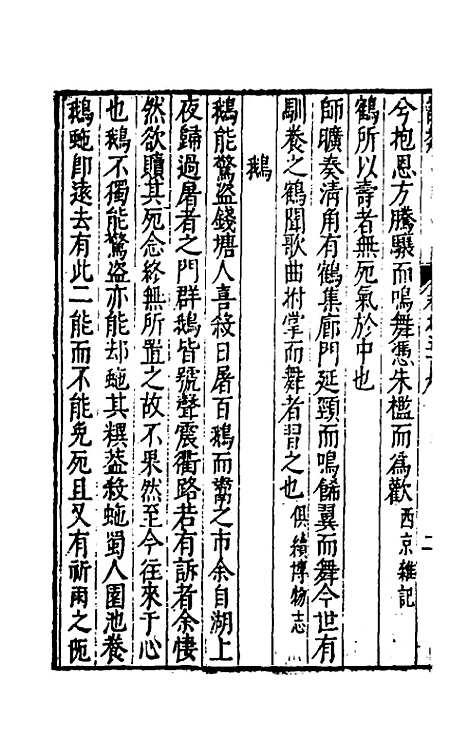 兮抱恩方騰驤而鳴舞憑朱檻而爲歡西京雜記
鶴所以壽者無死氣於中也
師曠奏淸角有鶴集廊門延頸而鳴舒翼而舞今世有
馴養之鶴聞歌曲拊掌而舞者習之也俱續博物志
鵝
鵝能驚盜錢塘人喜殺日屠百鵝而鬻之市余自湖上
夜歸過屠者之門群鵝皆號聲震衢路若有訴者余悽
然欲贖其死念終無所置之故不果然至今往來于心
也鵝不獨能驚盜亦能却虵其糞葢殺虵蜀人園池養
鵝虵卽遠去有此二能而不能免死且又有祈雨之厄
二